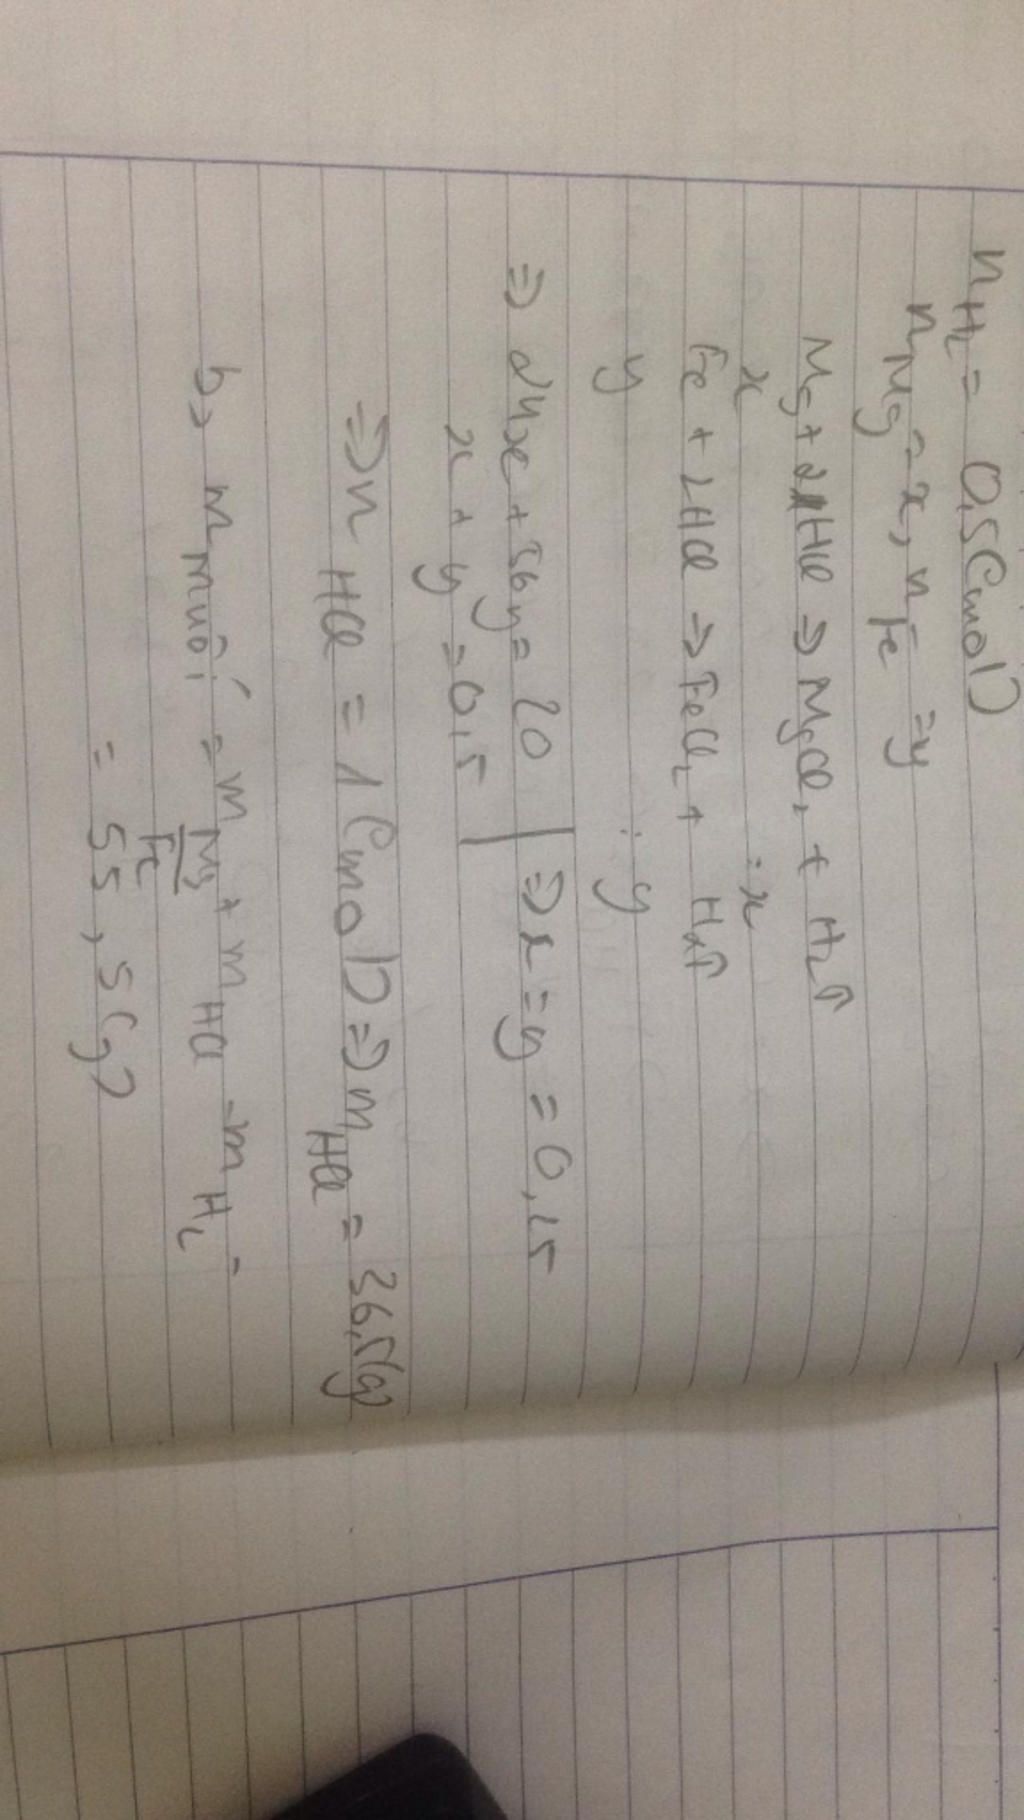 nH2 = 0,5 (mol)
nMg = x, nFe = y
Mg + 2HCl → MgCl2 + H2↑
x : x
Fe + 2HCl → FeCl2 + H2↑
y : y
⇒ 24x + 56y = 20 | ⇒ x = y = 0,25
x + y = 0,5
⇒ nHCl = 1 (mol) ⇒ mHCl = 36,5(g)
b> mmuối = m Mg Fe + mHCl - mH2 =
= 55,5 (g)